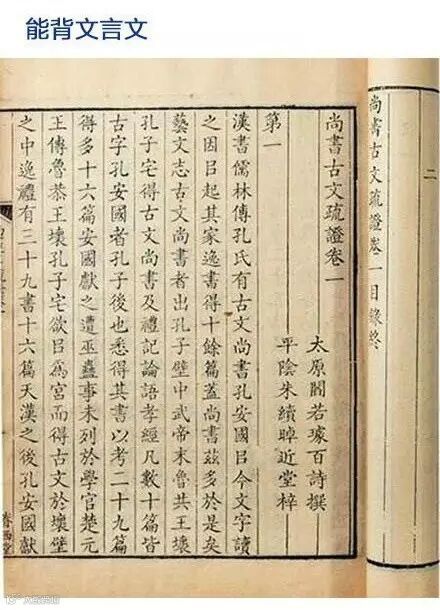 能背文言文
二
尚書古文疏證卷一目錄終
尚書古文疏證卷一
太原閻若璩百詩撰
平陰朱續晫近堂梓
第一
漢書儒林傳孔氏有古文尚書孔安國㠯今文字讀
之因㠯起其家逸書得十餘篇蓋尚書茲多於是矣
藝文志古文尚書者出孔子壁中武帝末魯共王壞
孔子宅得古文尚書及禮記論語孝經凡數十篇皆
古字孔安國者孔子後也悉得其書以考二十九篇
得多十六篇安國獻之遭巫蠱事未列於學官楚元
王傳魯恭王壞孔子宅欲㠯為宮而得古文於壞壁
之中逸禮有三十九書十六篇天漢之後孔安國獻
眷西堂